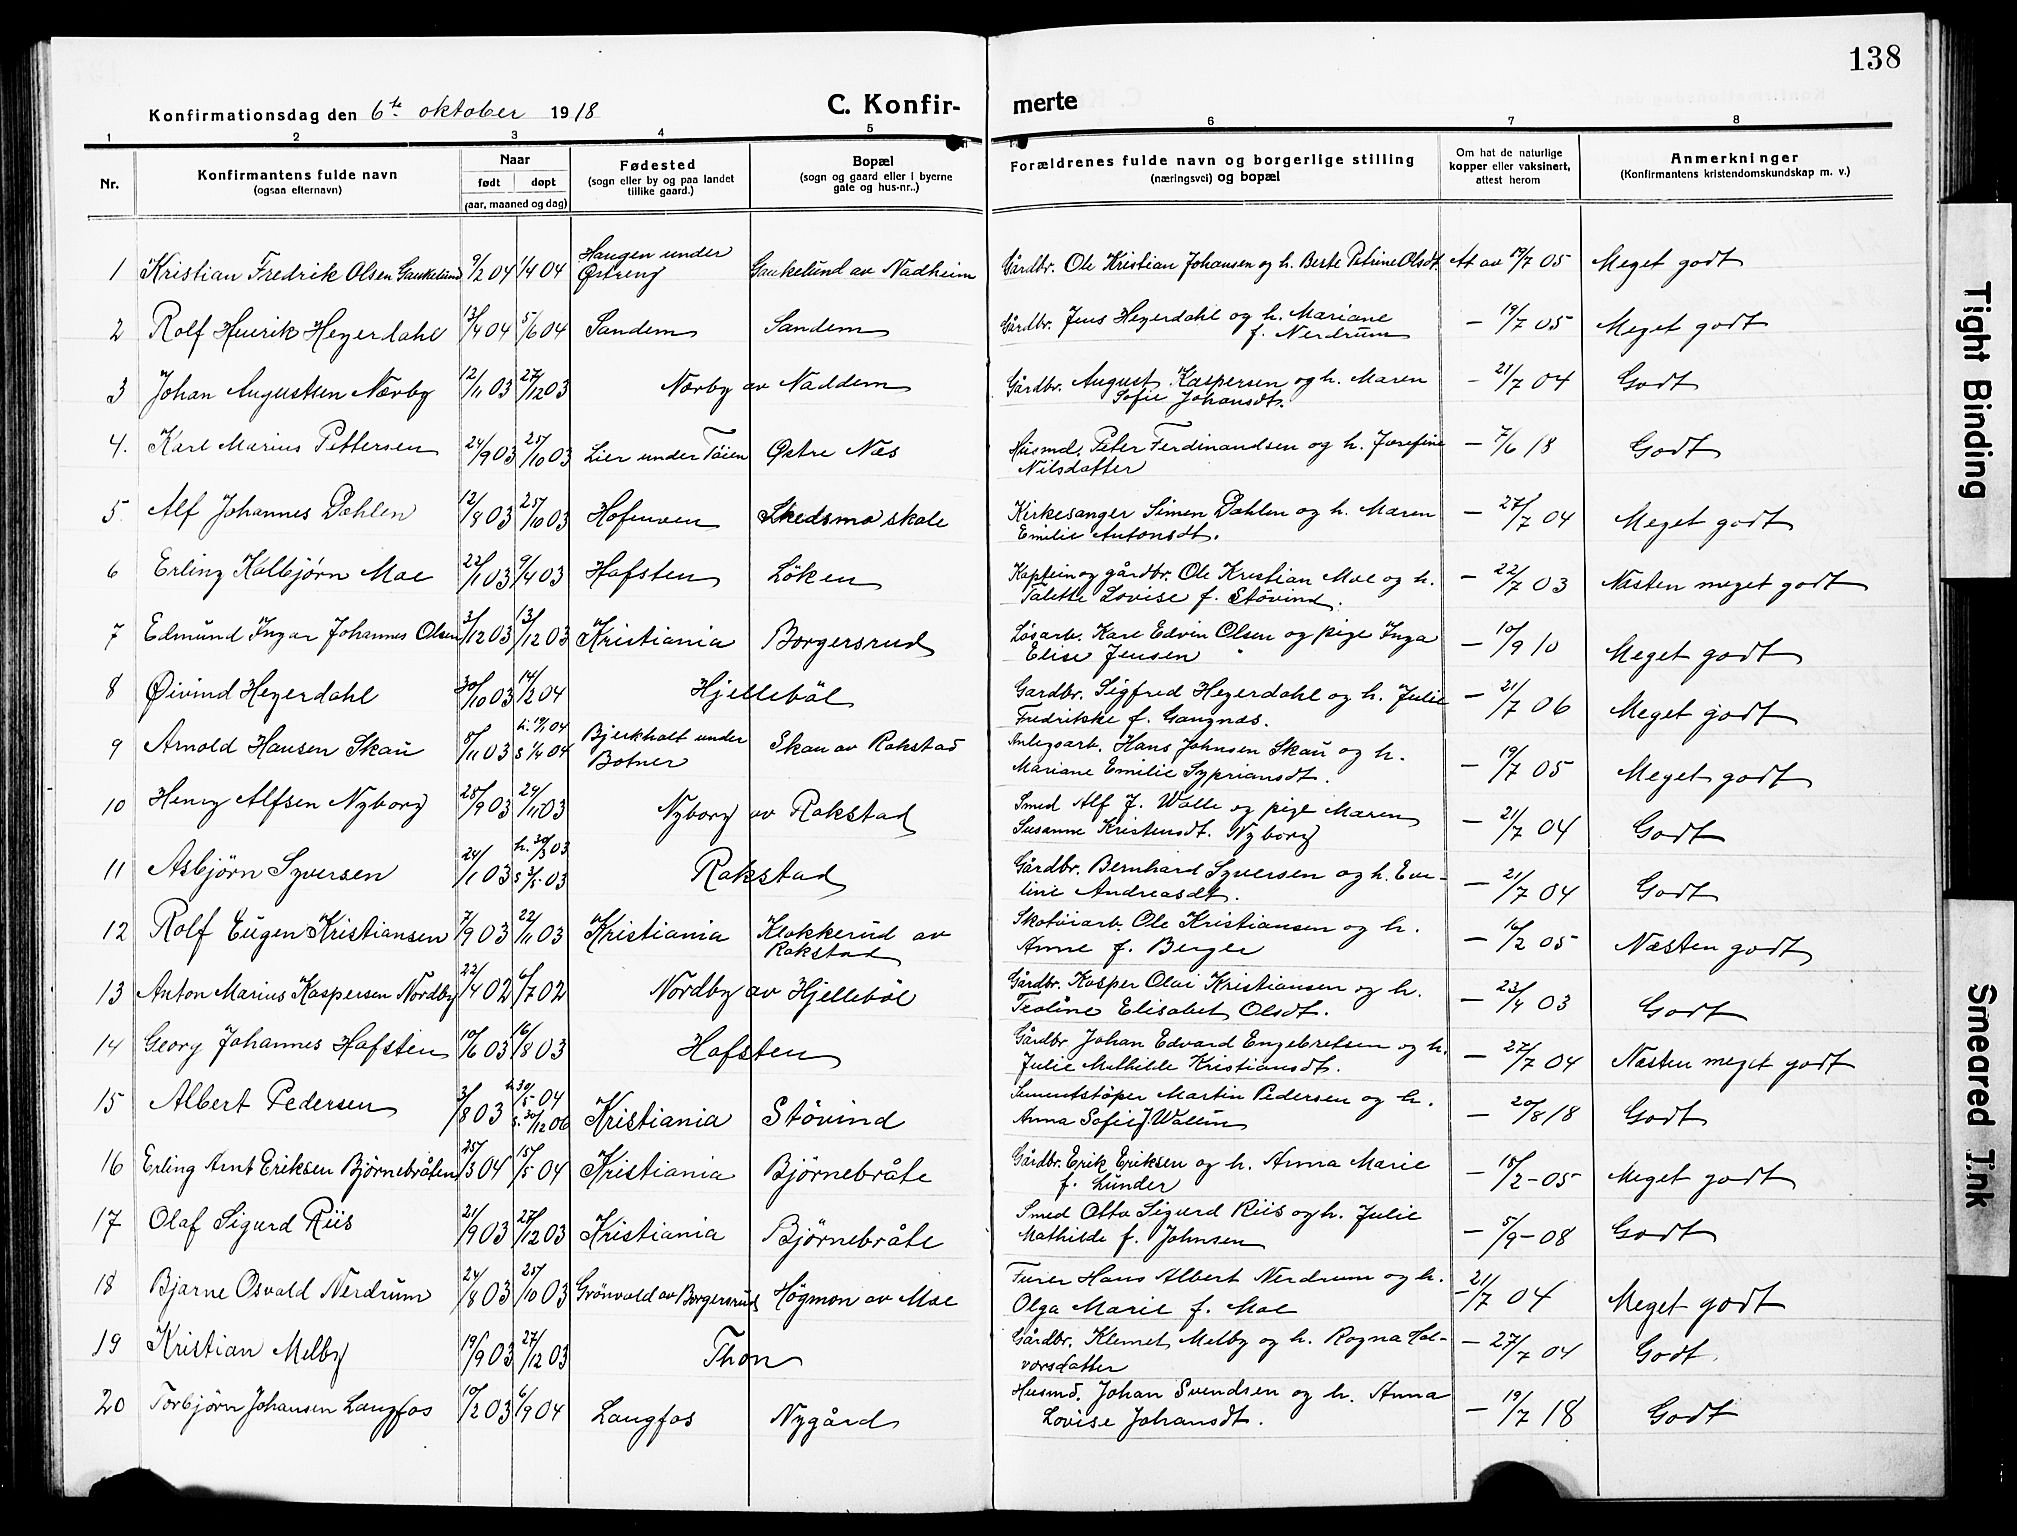 138
Konfirmationsdag den 6te oktober 1918 C. Konfir- merte
1 2 3 4 5 6 7 8
Nr.
Konfirmantens fulde navn
(ogsaa efternavn)
Naar
født døpt
(aar, maaned og dag)
Fødested
(sogn eller by og paa landet
tillike gaard.)
Bopæl
(sogn og gaard eller i byerne
gate og hus-nr..)
Forældrenes fulde navn og borgerlige stilling
(næringsvei) og bopæl
Om hat de naturlige
kopper eller vaksinert,
attest herom
Anmerkninger
(Konfirmantens kristendomskundskap m. v.)
1 Kristian Fredrik Olsen Gaukelund 9/2 04 4/4 04 Haugen under Østreng Gaukelund av Nadheim Gårdbr. Ole Kristian Johansen og h. Berte Petrine Olsdt. At av 19/7 05 Meget godt
2 Rolf Henrik Heyerdahl 13/4 04 5/6 04 Sandem Sandem Gårdbr. Jens Heyerdahl og h. Mariane f. Nerdrum — 19/7 05 Meget godt
3 Johan Augustsen Nærby 12/11 03 27/12 03 Nærby av Naddem Gårdbr. August Kaspersen og h. Maren Sofie Johansdt. — 21/7 04 Godt
4. Karl Marius Pettersen 24/9 03 25/10 03 Lier under Töien Østre Næs Husmd. Peter Ferdinandsen og h. Josefine Nilsdatter — 7/6 18 Godt
5 Alf Johannes Dahlen 12/8 03 25/10 03 Hofmoen Skedsmo skole Kirkesanger Simen Dahlen og h. Maren Emilie Antonsdt. — 27/7 04 Meget godt
6 Erling Kolbjörn Moe 22/1 03 9/4 03 Hafsten Löken Kaptein og gårdbr. Ole Kristian Moe og h. Talette Lovise f. Stövind. — 22/7 03 Næsten meget godt
7 Edmund Ingar Johannes Olsen 3/12 03 13/12 03 Kristiania Borgersrud Lösarb. Karl Edvin Olsen og pige Inga Elise Jensen — 10/9 10 Meget godt
8 Øivind Heyerdahl 30/10 03 14/2 04 Hjelleböl Gardbr. Sigfred Heyerdahl og h. Julie Fredrikke f. Gangnæs. — 21/7 06 Meget godt
9 Arnold Hansen Skau 5/11 03 h. 19/1 04 s 4/4 04 Bjerkholt under Botner Skau av Rakstad Anlegsarb. Hans Johnsen Skau og h. Mariane Emilie Sypriansdt. — 19/7 05 Meget godt
10 Henry Alfsen Nyborg 25/9 03 29/11 03 Nyborg av Rakstad Smed Alf J. Walle og pige Maren Susanne Kristensdt. Nyborg — 21/7 04 Godt
11 Asbjörn Syversen 24/1 03 h. 30/3 03 s 3/5 03 Rakstad Gårdbr. Bernhard Syversen og h. Eve- line Andreasdt. — 21/7 04 Godt
12 Rolf Eugen Kristiansen 7/9 03 22/11 03 Kristiania Klokkerud av Rakstad Skotöiarb. Ole Kristiansen og h. Anne f. Berger — 16/2 05 Næsten godt
13 Anton Marius Kaspersen Nordby 22/4 02 6/7 02 Nordby av Hjelleböl Gårdbr. Kasper Olai Kristiansen og h. Teoline Elisabet Olsdt. — 23/4 03 Godt
14 Georg Johannes Hafsten 10/6 03 16/8 03 Hafsten Gårdbr Johan Edvard Engebretsen og h. Julie Mathilde Kristiansdt. — 27/7 04 Næsten meget godt
15 Albert Pedersen 3/8 03 h. 30/5 04 s. 30/12 06 Kristiania Stövind Sementstöper Martin Pedersen og h. Anna Sofie f. Wallin — 20/8 18 Godt
16 Erling Arnt Eriksen Björnebråten 25/3 04 15/5 04 Kristiania Björnebråte Gårdbr. Erik Eriksen og h. Anna Marie f. Lunder — 15/2 - 05 Meget godt
17 Olaf Sigurd Riis 21/9 03 27/12 03 Kristiania Björnebråte Smed Otto Sigurd Riis og h. Julie Mathilde f. Johnsen — 5/9 - 08 Godt
18 Bjarne Osvald Nerdrum 24/8 03 25/10 03 Grönvold av Borgersrud Högmon av Moe Furer Hans Albert Nerdrum og h. Olga Marie f. Moe — 21/7 04 Meget godt
19 Kristian Melby 19/9 03 27/12 03 Thon Gårdbr. Klemet Melby og h. Ragna Hal- vorsdatter — 27/7 04 Godt
20 Torbjörn Johansen Langfos 10/2 03 6/9 04 Langfos Nygård Husmd. Johan Svendsen og h. Anna Lovise Johansdt. — 19/7 18 Godt
Tight Binding
Smeared Ink